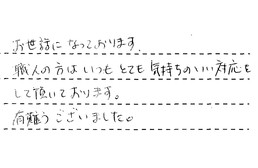 お世話になっております。
職人の方はいつもとても気持ちのいい対応を
して頂いております。
有難うございました。